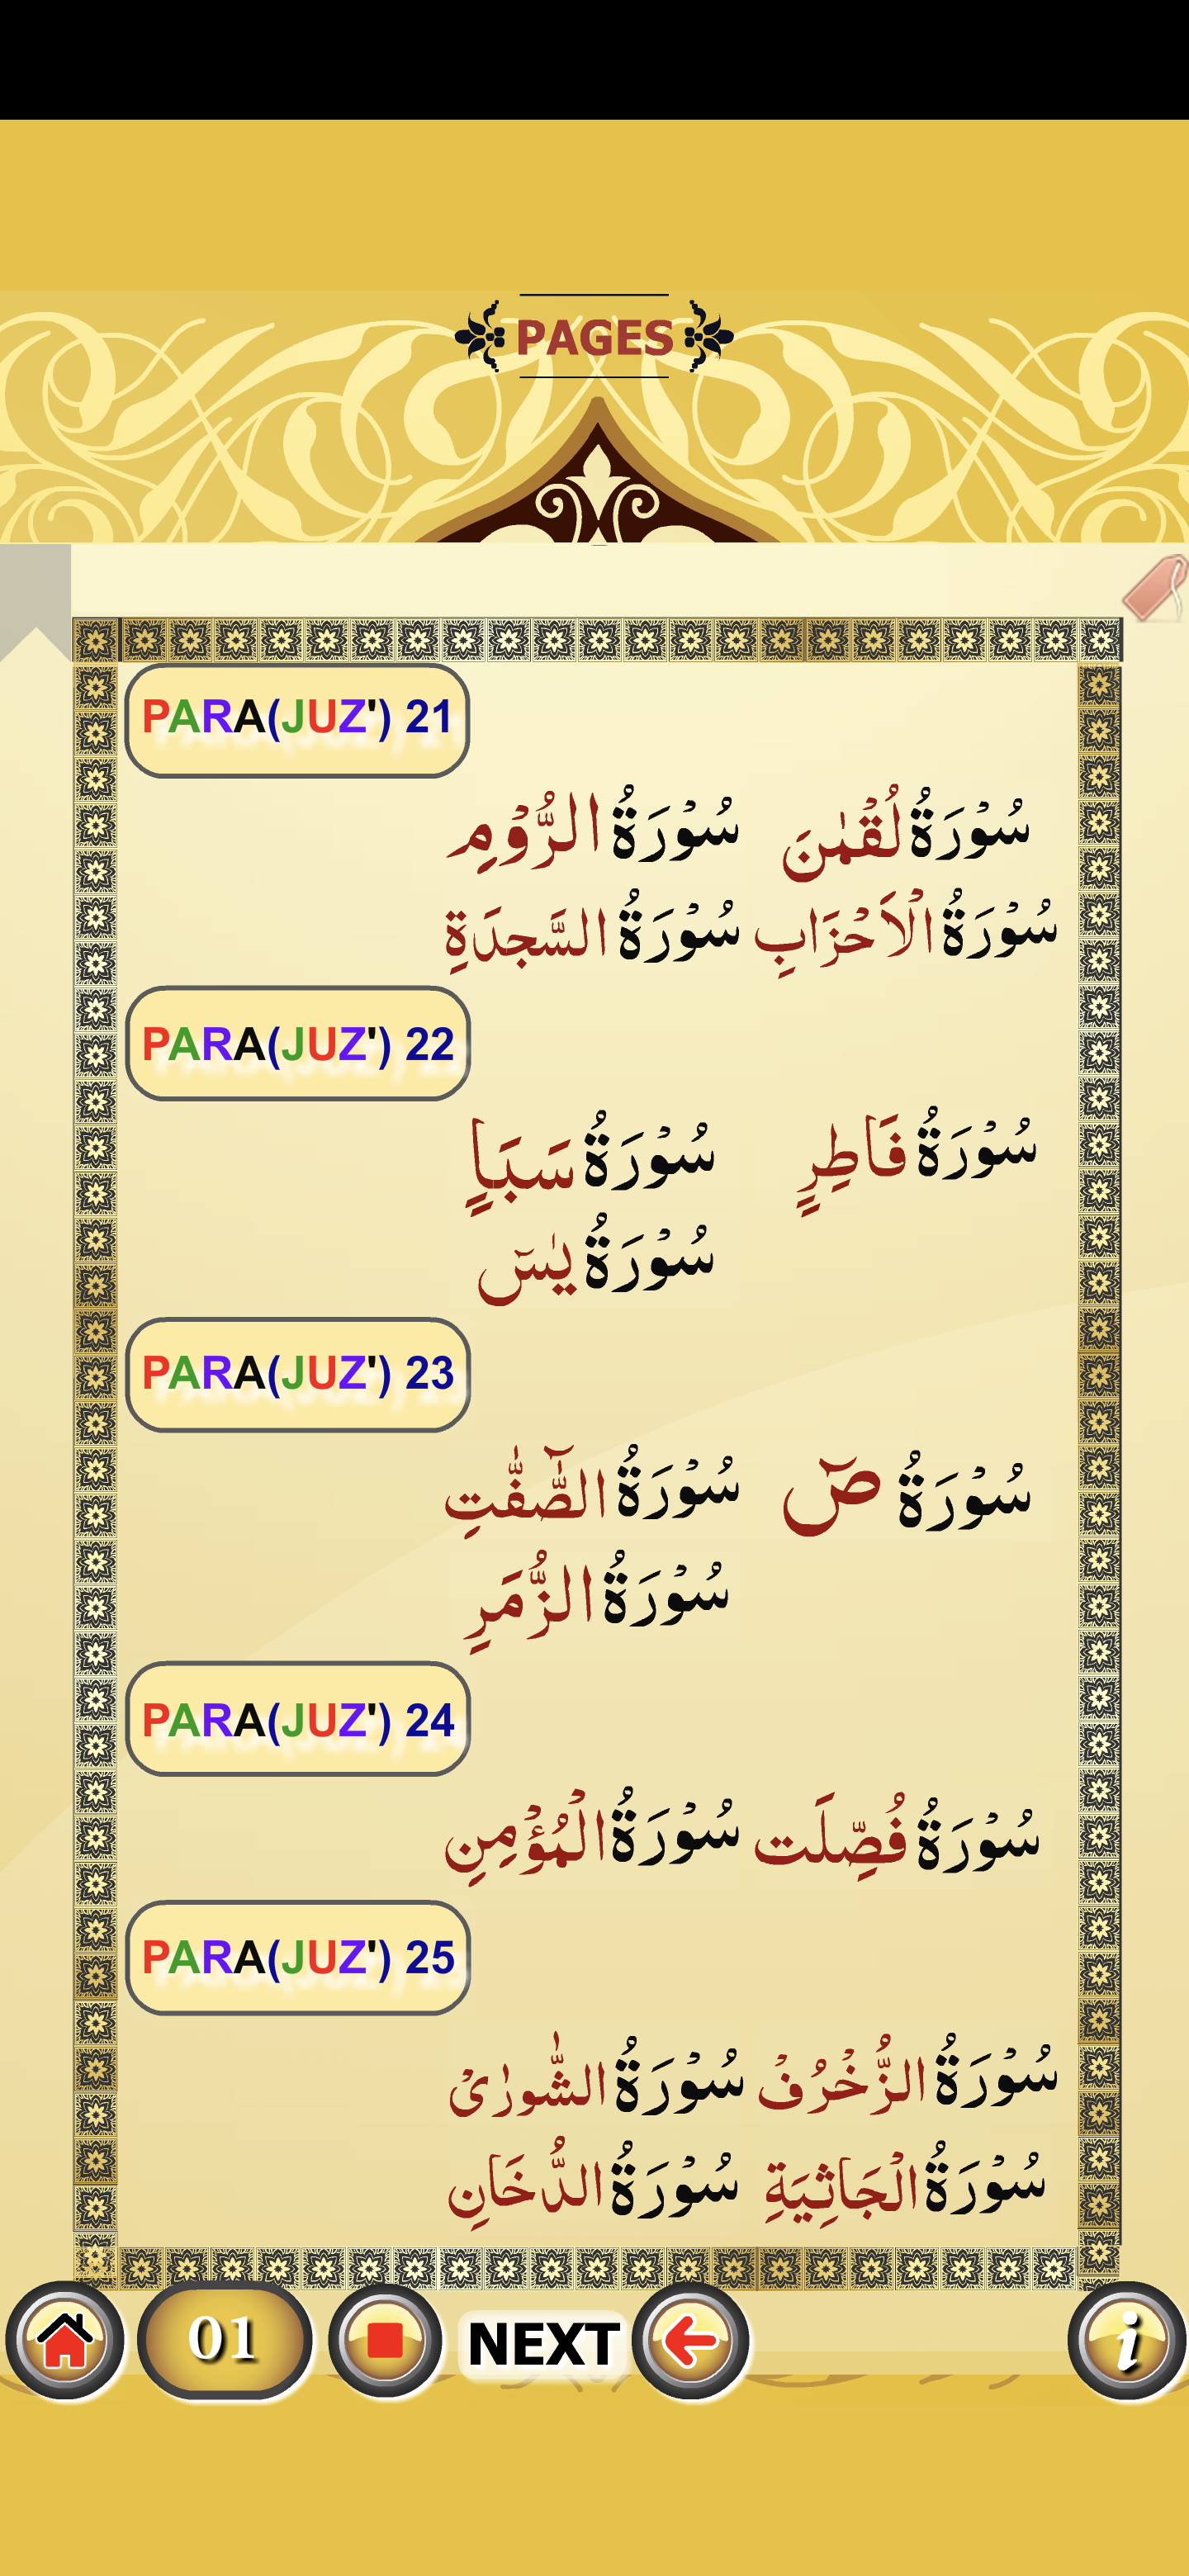 PAGES
PARA(JUZ') 21
سُوْرَةُ لُقْمٰنَ سُوْرَةُ الرُّوْمِ
سُوْرَةُ الْاَحْزَابِ سُوْرَةُ السَّجدَةِ
PARA(JUZ') 22
سُوْرَةُ فَاطِرٍ سُوْرَةُ سَبَاٍ
سُوْرَةُ يٰسٓ
PARA(JUZ') 23
سُوْرَةُ صٓ سُوْرَةُ الصّٰٓفّٰتِ
سُوْرَةُ الزُّمَرِ
PARA(JUZ') 24
سُوْرَةُ فُصِّلَت سُوْرَةُ الْمُؤْمِنِ
PARA(JUZ') 25
سُوْرَةُ الزُّخْرُفْ سُوْرَةُ الشُّورٰىْ
سُوْرَةُ الْجَاثِيَةِ سُوْرَةُ الدُّخَانِ
01 NEXT i